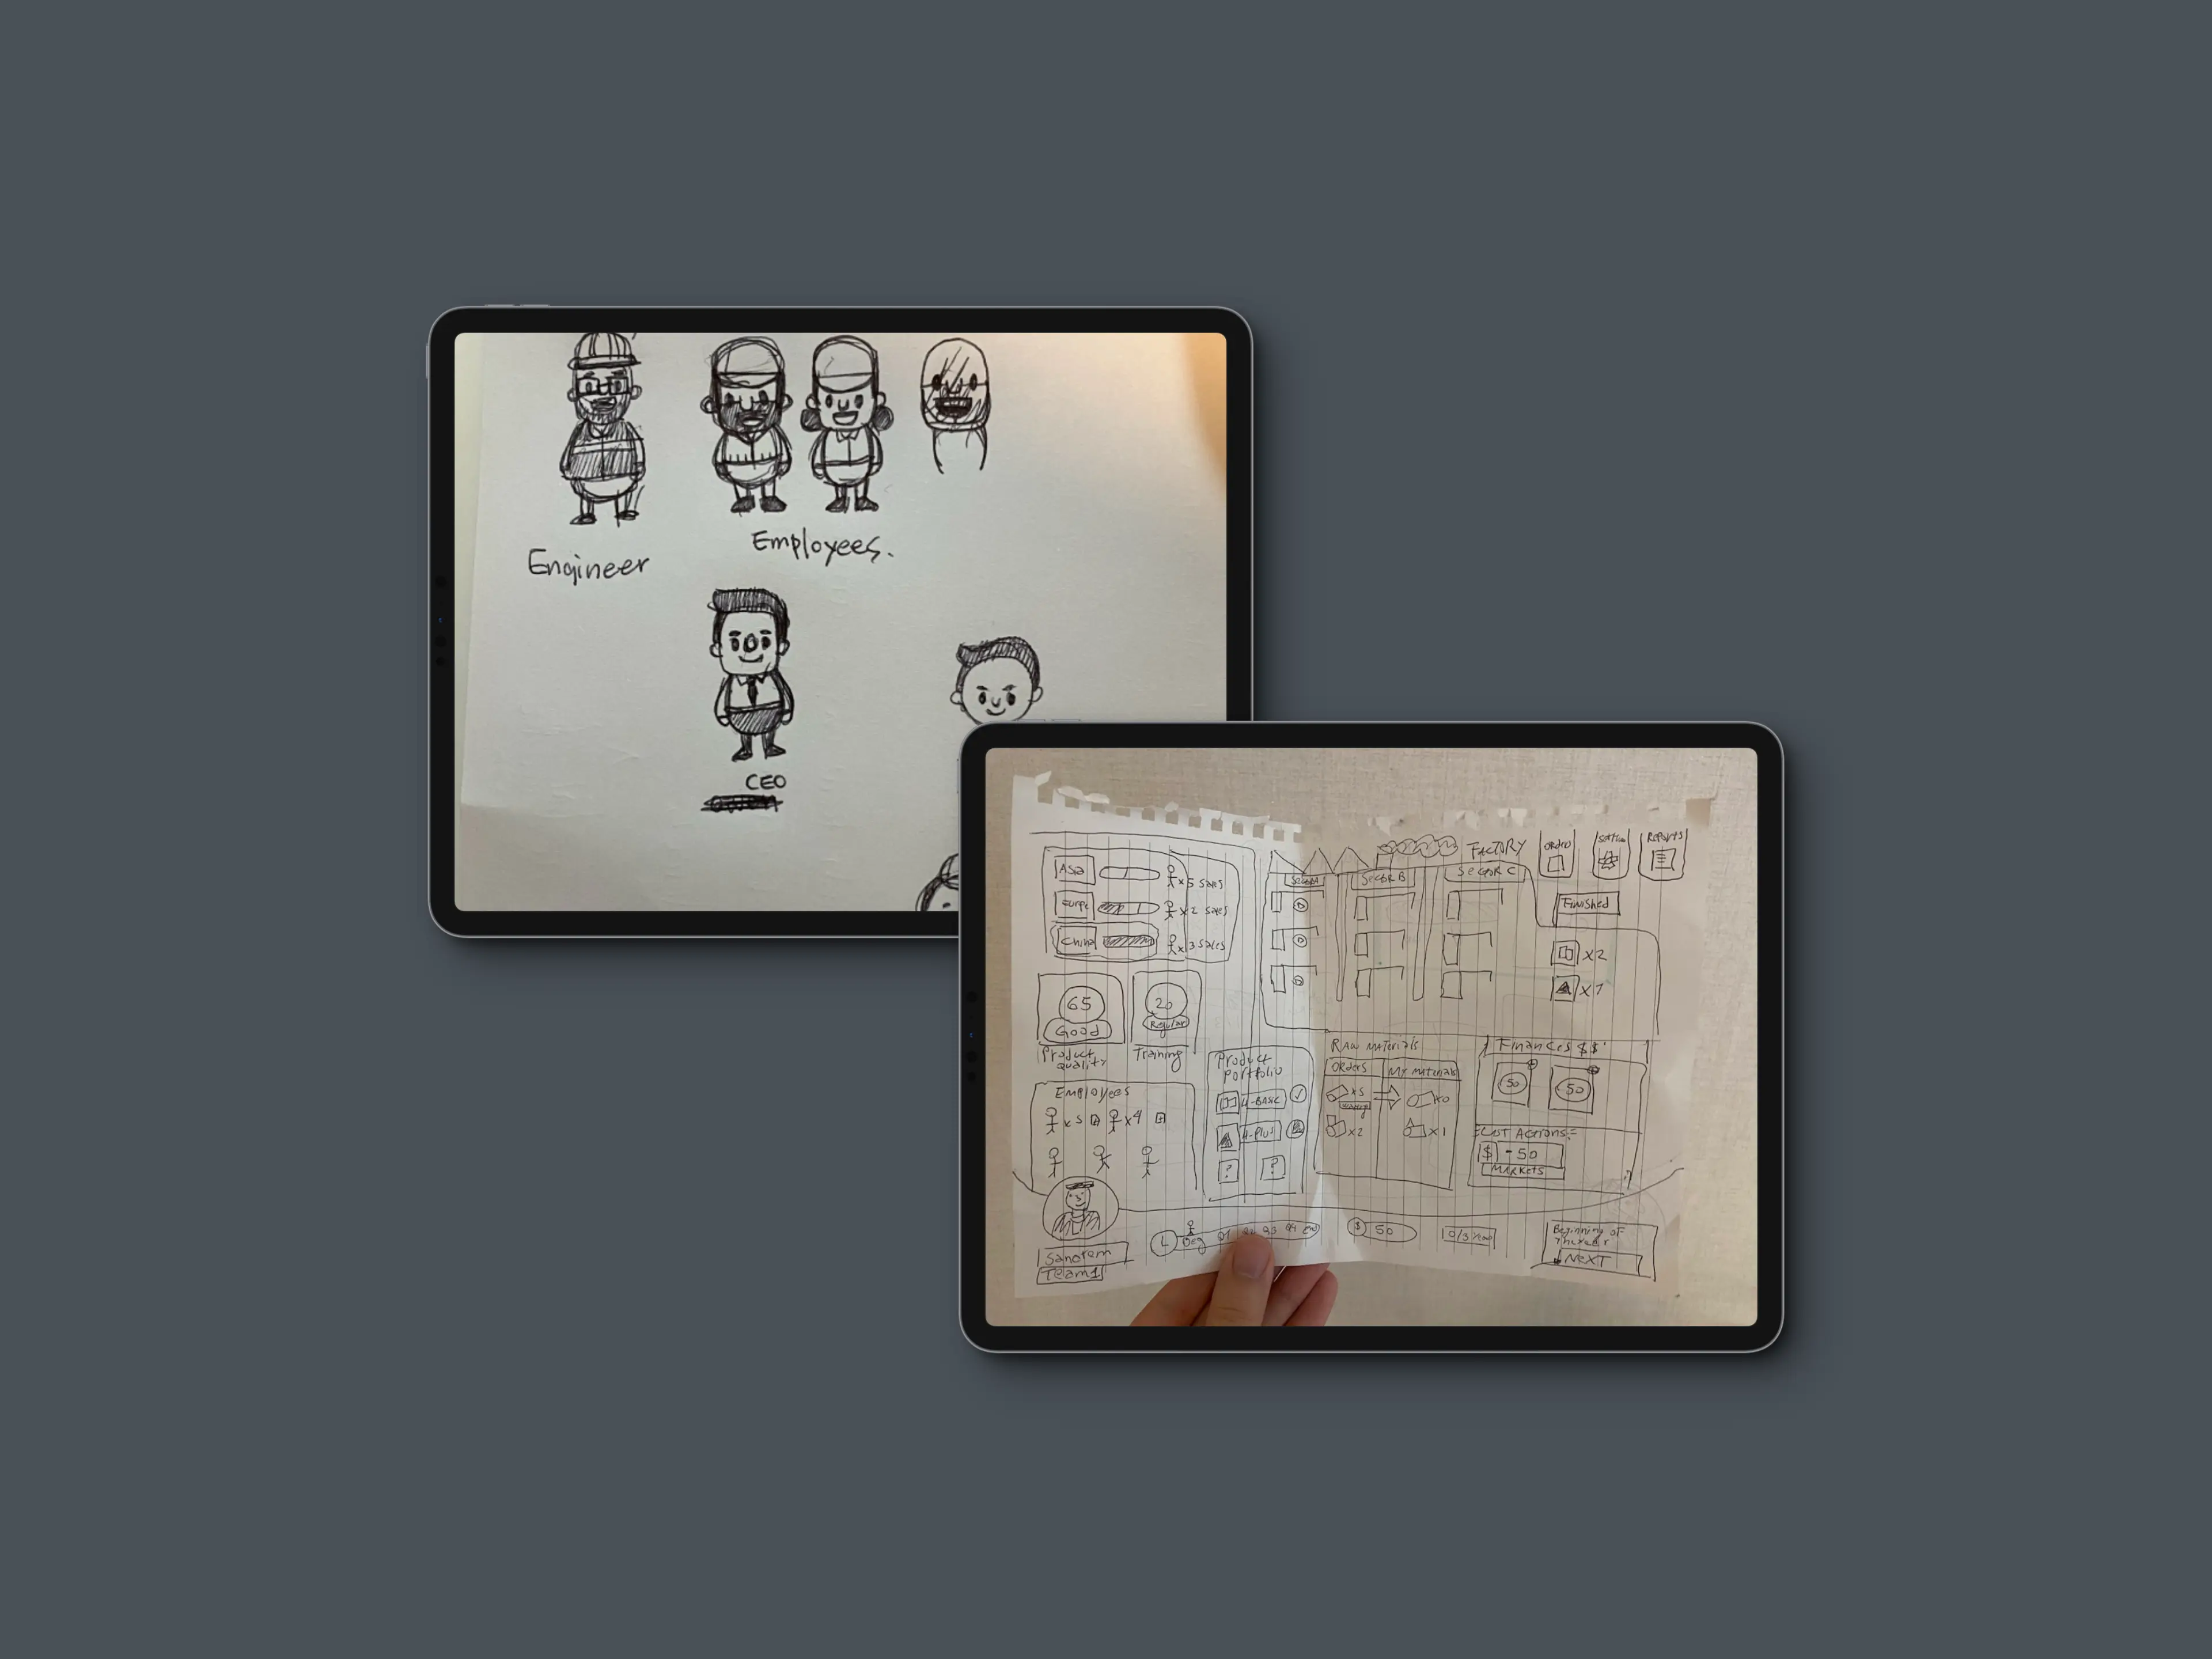 Engineer
Employees.
CEO
Asia
x5 sales
x2 sales
China
x3 sales
65
Good
Product
quality
20
Regular
Training
Employees
x5
x4
Sanofem
Team1
FACTORY
Orders
Reports
Sector B
Sector C
Finished
x2
x1
Product
Portfolio
U-BASIC
U-Plus
?
?
Raw Materials
Orders
My Materials
x5
x0
x2
x1
Finances $$
50
50
List Actions
$ - 50
Markets
L
Beg
Q1
Q3
Q4
End
$ 50
0/3 Year
Beginning of
the year
NEXT